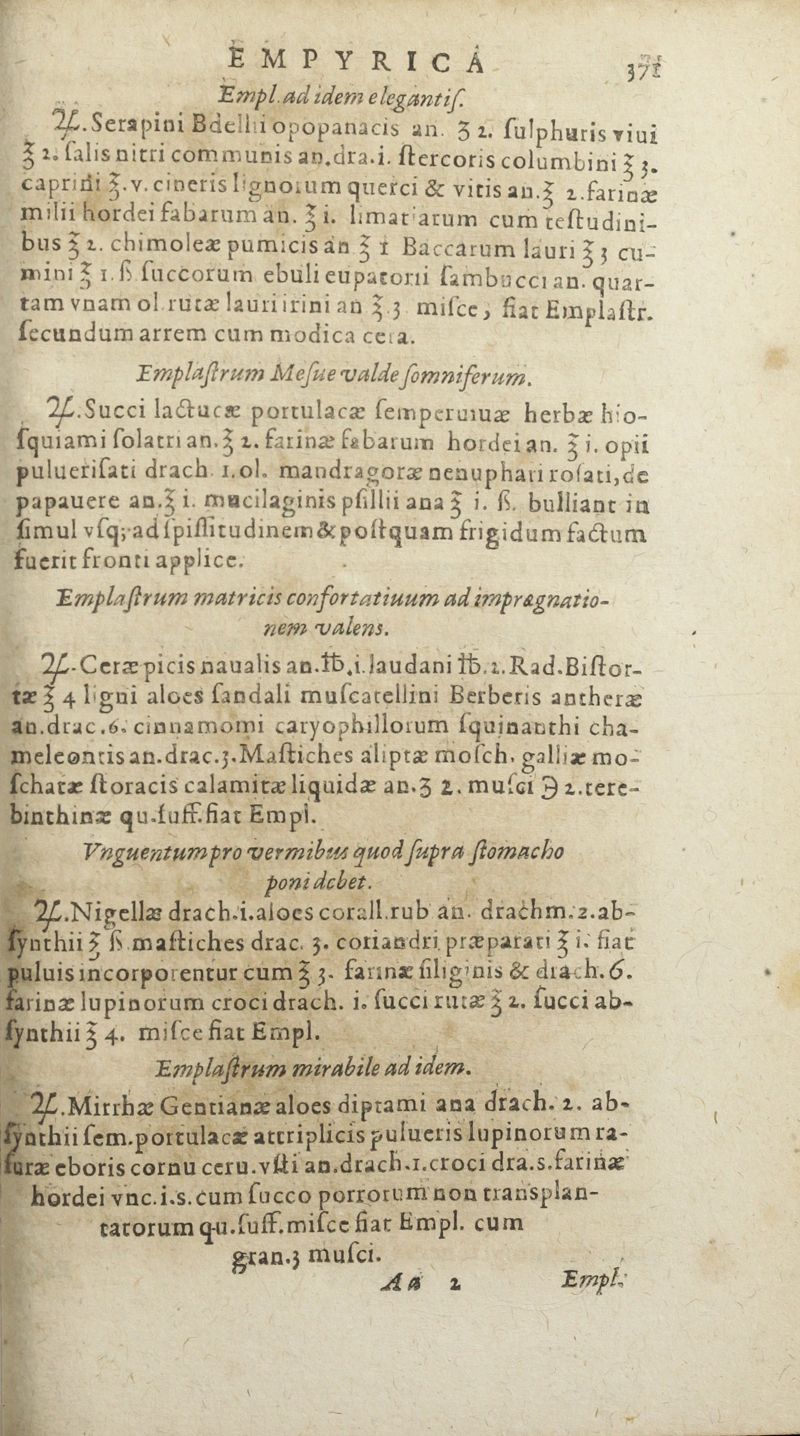 EMPYRICA 371
Empl. ad idem elegantiſ.
℞. Serapini Bdellii opopanacis an. ʒ 2. ſulphuris viui
℥ 2. ſalis nitri communis an. dra. i. ſtercoris columbini ℥ 3.
caprini ℥. v. cineris lignorum querci & vitis an. ℥ 2. farinæ
milii hordei fabarum an. ℥ i. limatiarum cum teſtudini-
bus ℥ 2. chimoleæ pumicis an ℥ 1 Baccarum lauri ℥ 3 cu-
mini ℥ 1. ß ſuccorum ebuli eupatorii ſambucci an. quar-
tam vnam ol. rutæ lauri irini an ℥. 3 miſce, fiat Emplaſtr.
ſecundum arrem cum modica cera.
Emplaſtrum Meſue valde ſomniferum.
℞. Succi lactucæ portulacæ ſemperuiuæ herbæ hio-
ſquiami ſolatri an. ℥ 2. farinæ fabarum hordei an. ℥ i. opii
pulueriſati drach. 1. ol. mandragoræ nenuphari roſati, de
papauere an. ℥ i. mucilaginis pſillii ana ℥ i. ß. bulliant in
ſimul vſq; ad ſpiſſitudinem & poſtquam frigidum factum
fuerit fronti applice.
Emplaſtrum matricis confortatiuum ad imprægnatio-
nem valens.
℞. Ceræ picis naualis an. ℔. i. laudani ℔. 1. Rad. Biſtor-
tæ ℥ 4 ligni aloes ſandali muſcatellini Berberis antheræ
an. drac. 6. cinnamomi caryophillorum ſquinanthi cha-
meleontis an. drac. 3. Maſtiches aliptæ moſch. galliæ mo-
ſchatæ ſtoracis calamitæ liquidæ an. ʒ 2. muſci ℈ 2. tere-
binthinæ qu. ſuff. fiat Empl.
Vnguentum pro vermibus quod ſupra ſtomacho
poni debet.
℞. Nigellæ drach. i. aloes corall. rub an. drachm. 2. ab-
ſynthii ℥ ß maſtiches drac. 3. coriandri præparati ℥ i. fiat
puluis incorporentur cum ℥ 3. farinæ ſiliginis & drach. 6.
farinæ lupinorum croci drach. i. ſucci rutæ ℥ 2. ſucci ab-
ſynthii ℥ 4. miſce fiat Empl.
Emplaſtrum mirabile ad idem.
℞. Mirrhæ Gentianæ aloes diptami ana drach. 2. ab-
ſynthii ſem. portulacæ attriplicis pulueris lupinorum ra-
ſuræ eboris cornu ceru. vſti an. drach. 1. croci dra. s. farinæ
hordei vnc. i. s. cum ſucco porrorum non transplan-
tatorum qu. ſuff. miſce fiat Empl. cum
gran. 3 muſci.
Aa 2 Empl.